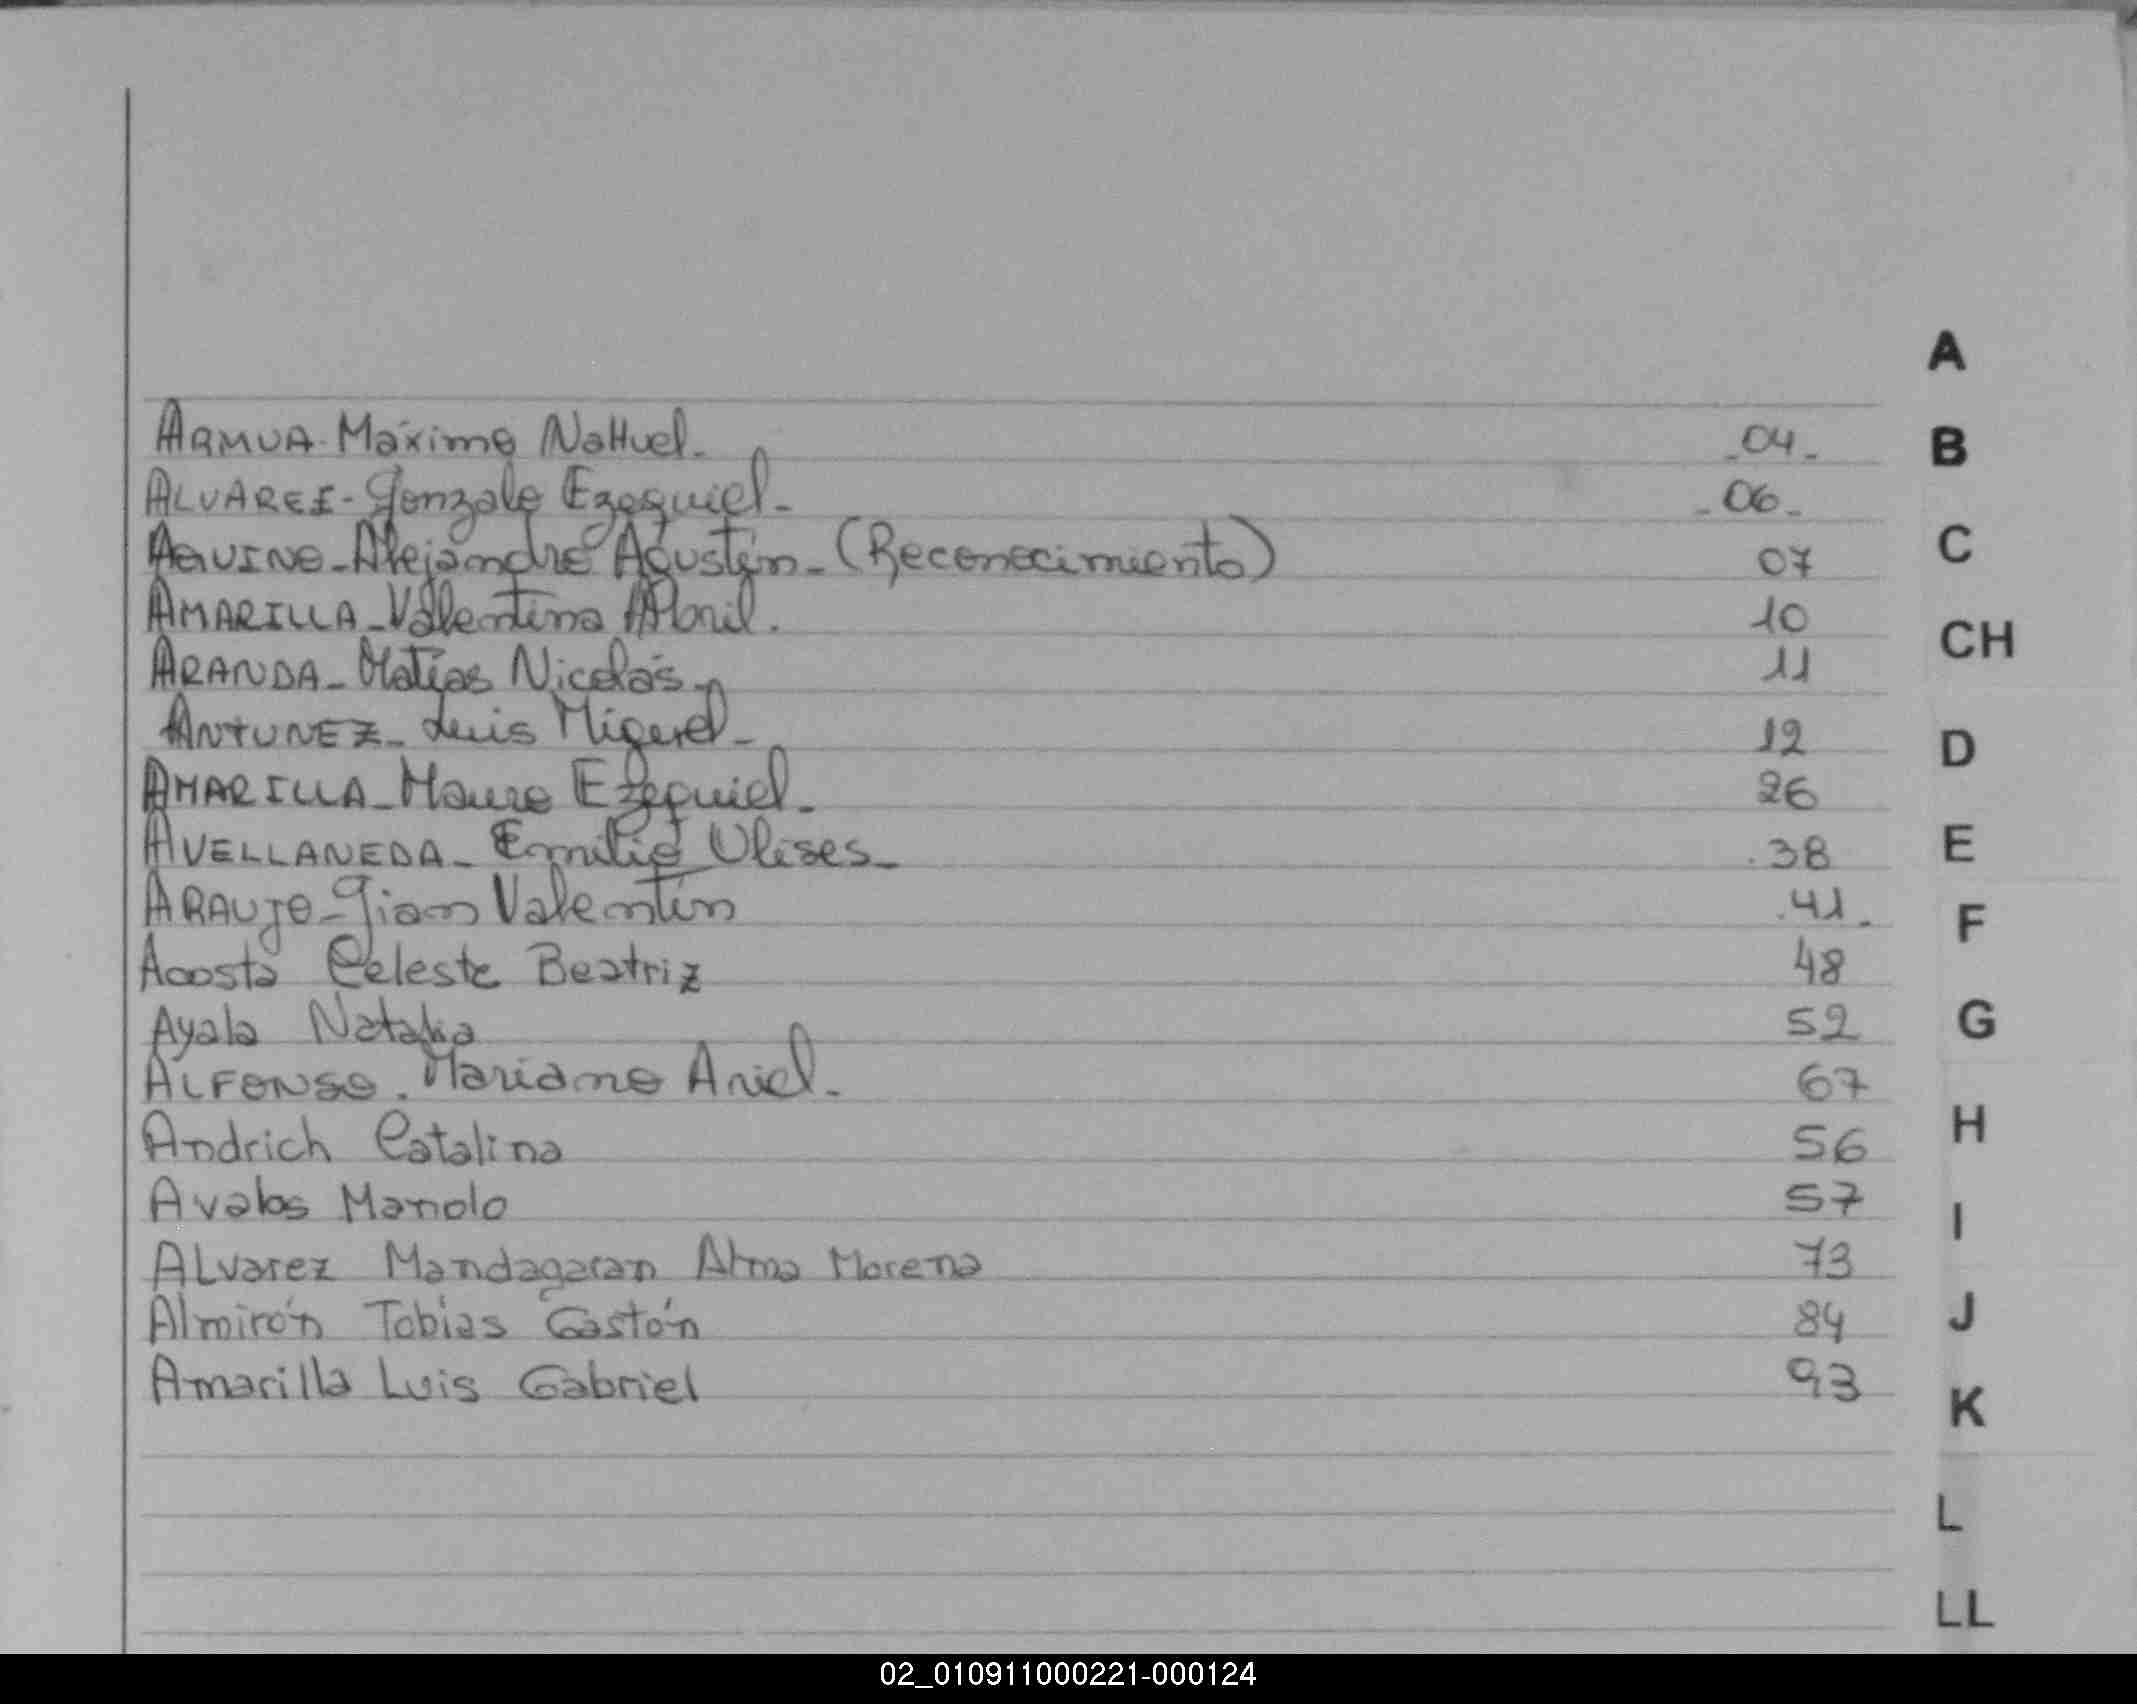 A
ARMUA. Máximo NaHuel. _04_
B
ALVAREZ- Gonzalo Ezequiel_ _06_
AQUINO_Alejandro Agustín_(Reconocimiento) 07
C
AMARILLA_Valentina Abril. 10
CH
ARANDA_Matías Nicolás_ 11
ANTUNEZ_Luis Miguel_ 12
D
AMARILLA_Mauro Ezequiel_ 26
AVELLANEDA_ Emilio Ulises_ .38
E
ARAUJO_Gian Valentín .41.
F
Acosta Celeste Beatriz 48
Ayala Natalia 52
G
ALFONSO. Mariano Ariel_ 67
Andrich Catalina 56
H
Avalos Manolo 57
I
ALvarez Mandagaran Alma Morena 73
Almirón Tobias Gastón 84
J
Amarilla Luis Gabriel 93
K
L
LL
02_010911000221-000124